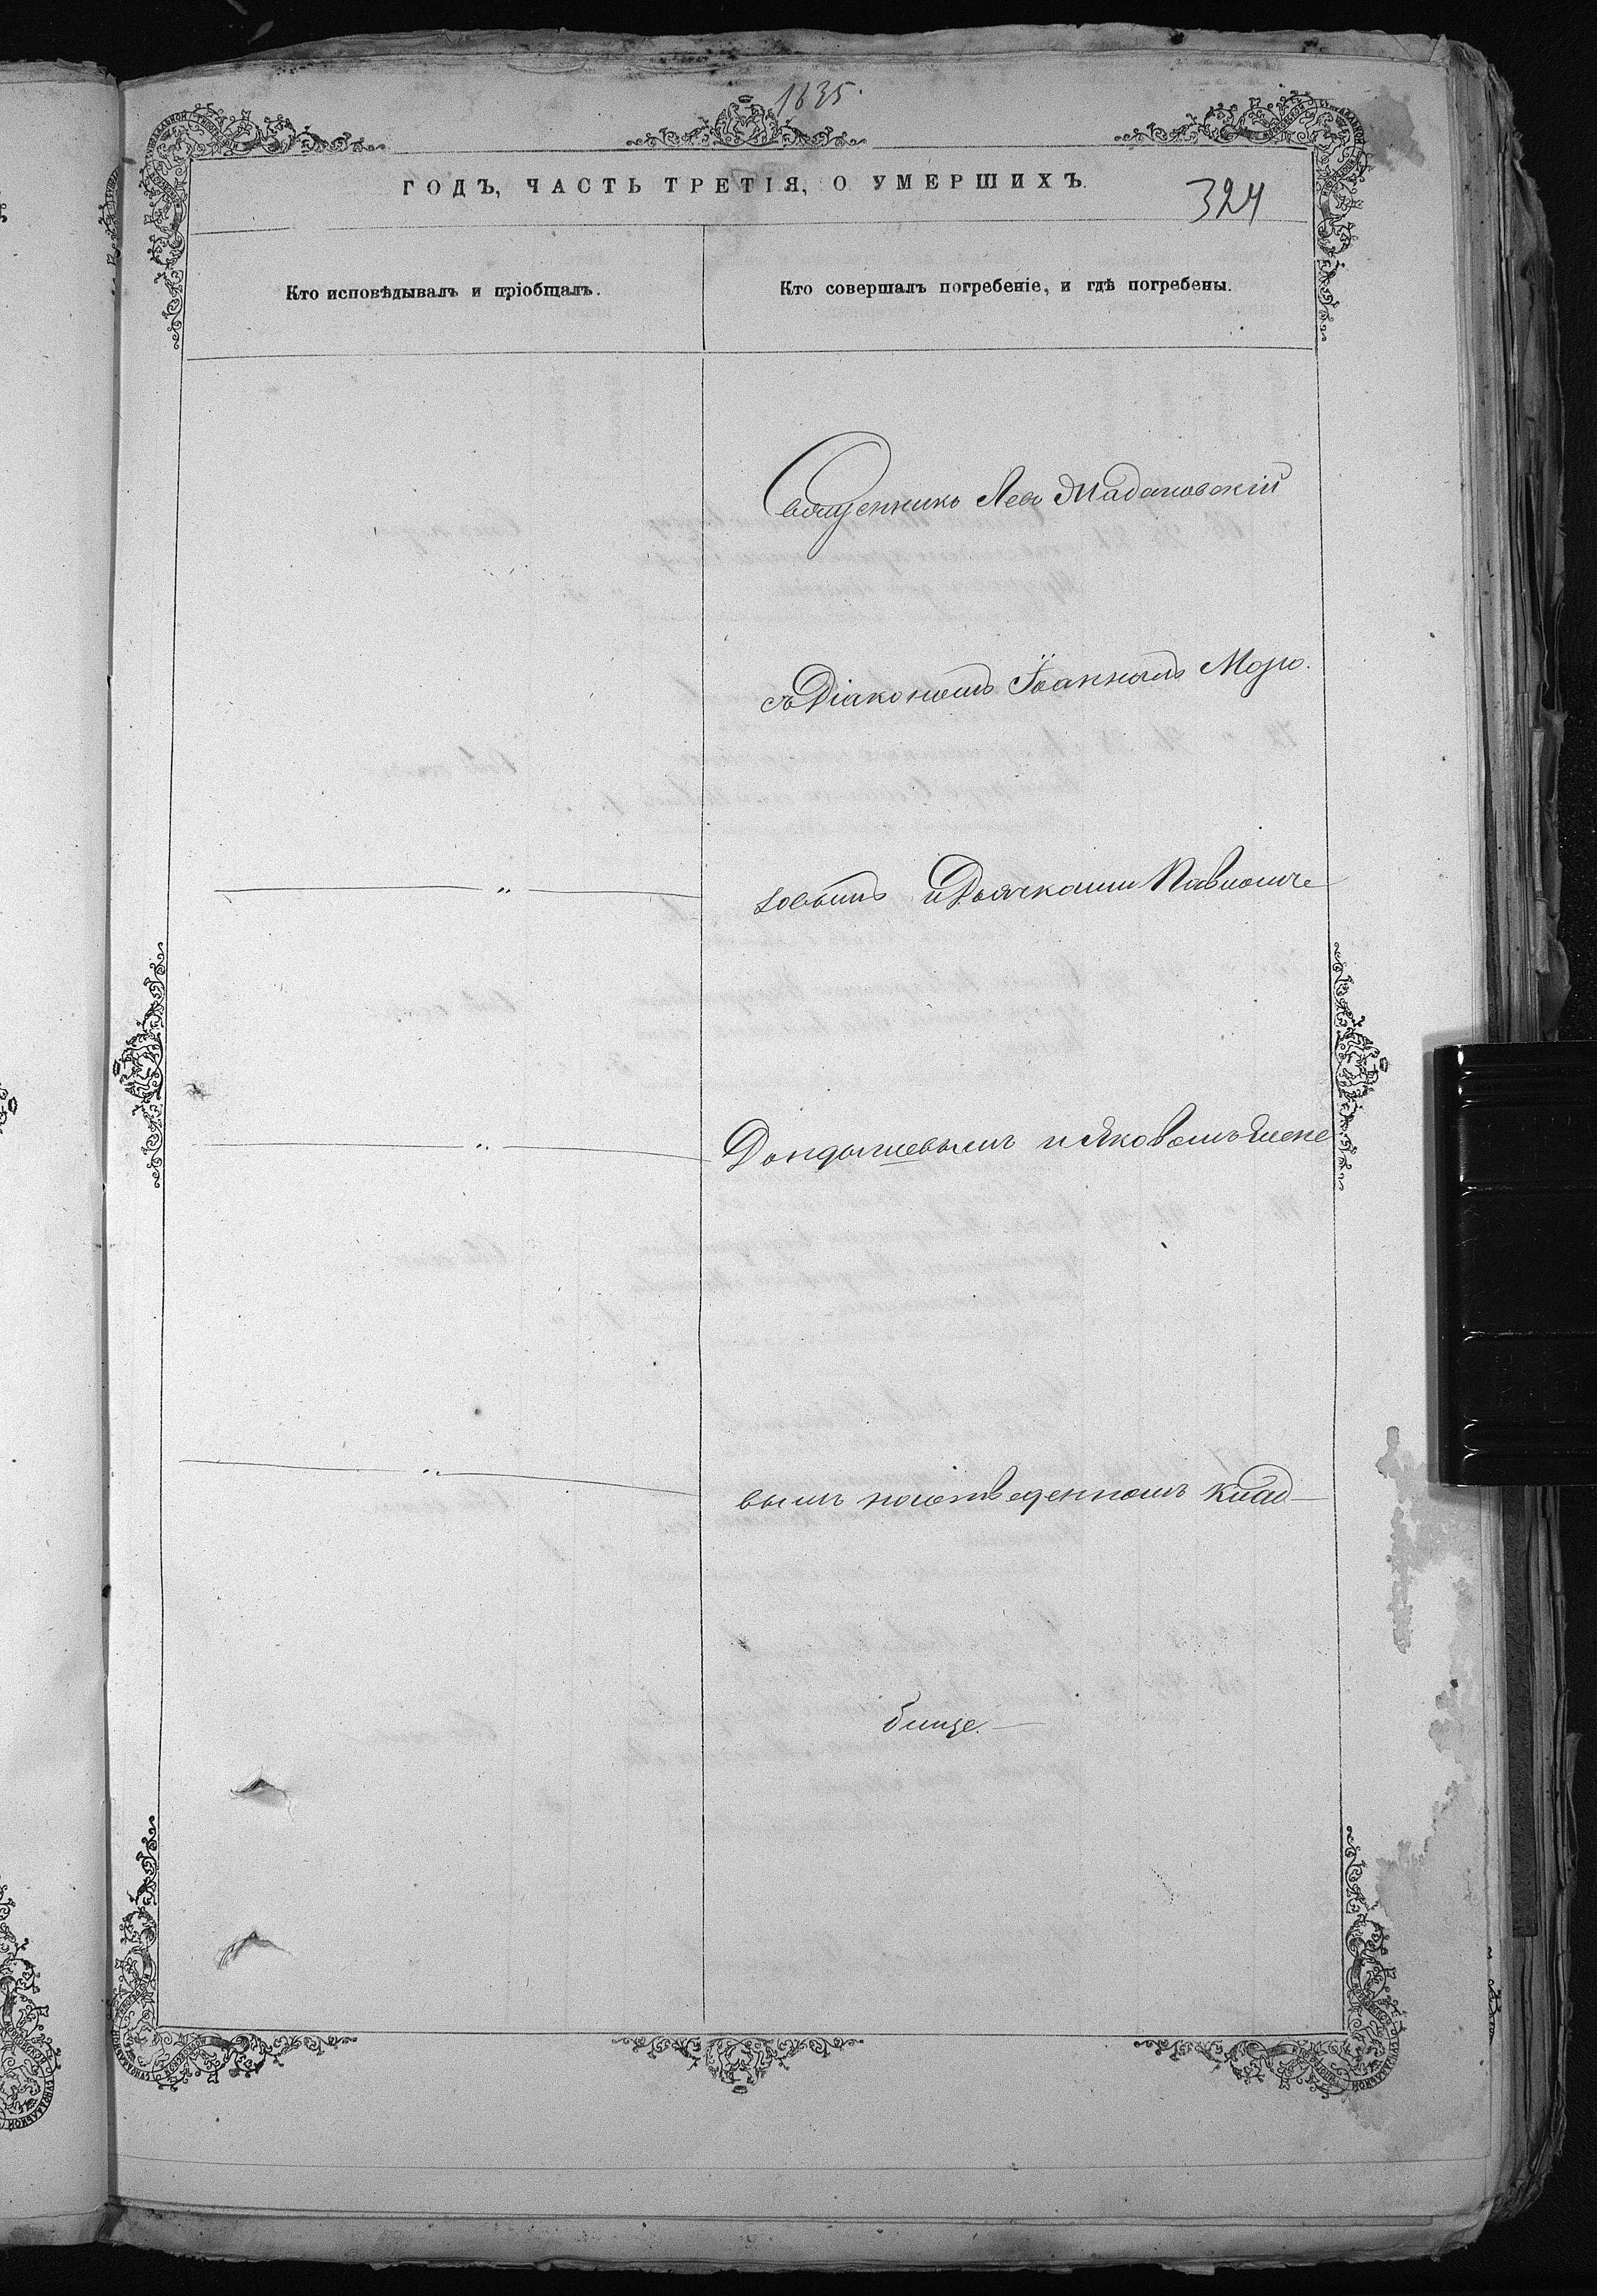 1635.
ГОДЪ, ЧАСТЬ ТРЕТІЯ, О УМЕРШИХЪ.
324
Кто исповѣдывалъ и пріобщалъ.
Кто совершалъ погребеніе, и гдѣ погребены.
Священникъ Левъ
съ Діакономъ Іоанномъ Моро.
зовымъ и Дьячками Павломъ
и Яковомъ
вымъ на отведенномъ клад-
бище.